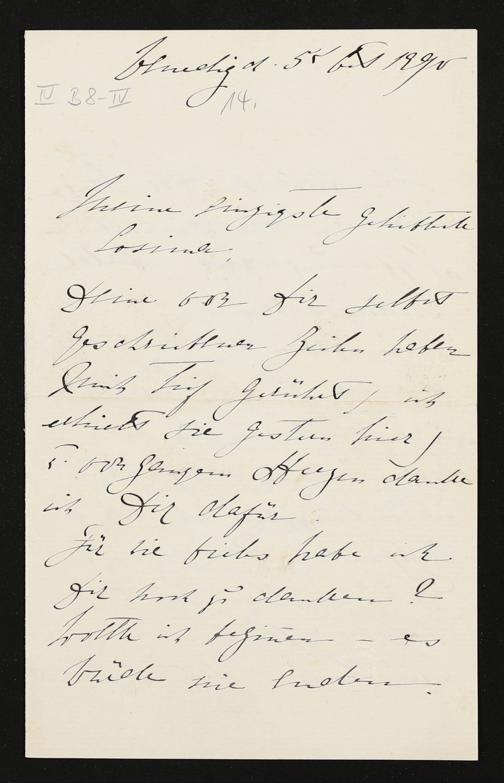 Venedig d. 5t Oct 1890
IV B8-IV 14.
Meine einzigste geliebteste
Cosima,
Deine von Dir selbst
geschriebenen Zeilen haben
mich tief gerührt, ich
erhielt sie gestern hier,
u. von ganzem Herzen danke
ich Dir dafür.
Für wie vieles habe ich
Dir noch zu danken?
Wollte ich beginnen – es
würde nie enden.